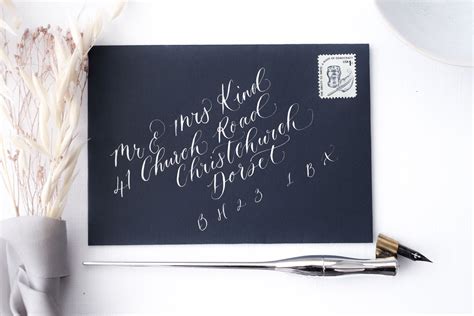 Mr & Mrs Kind
41 Church Road
Christchurch
Dorset
BH23 1BX